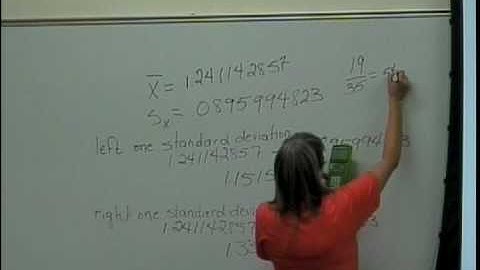 x̄ = 1.241142857
Sx = 0895994823
19/35 = 54
left one standard deviation
1.241142857 - 994823
1.1515
right one standard devia
1.241142857
1.33